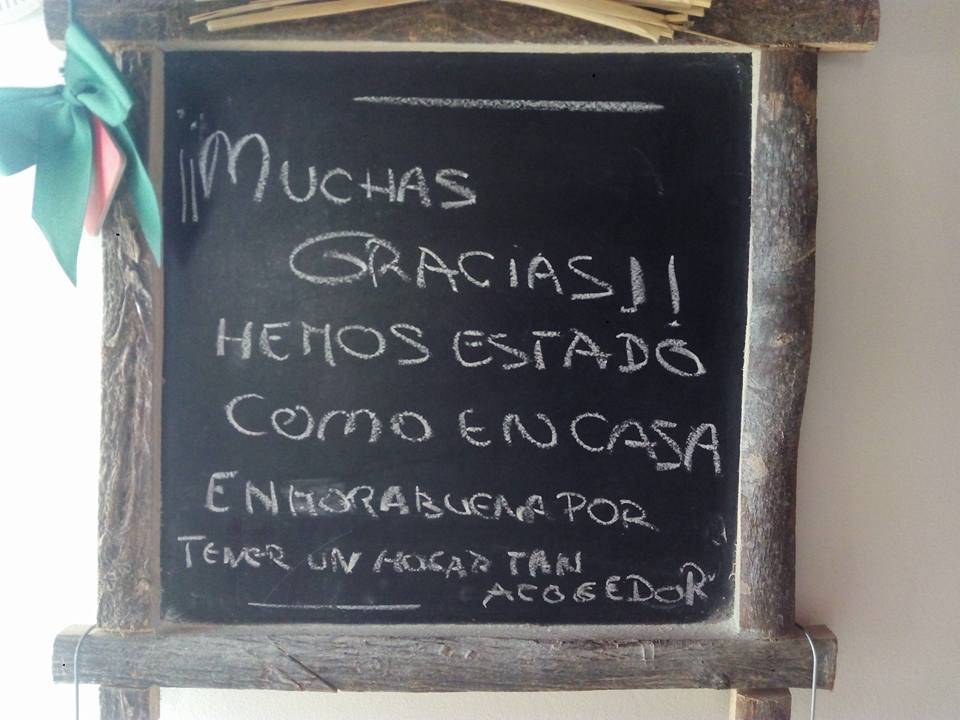 ¡¡MUCHAS
GRACIAS!!
HEMOS ESTADO
COMO EN CASA
ENHORABUENA POR
TENER UN HOGAR TAN
ACOGEDOR